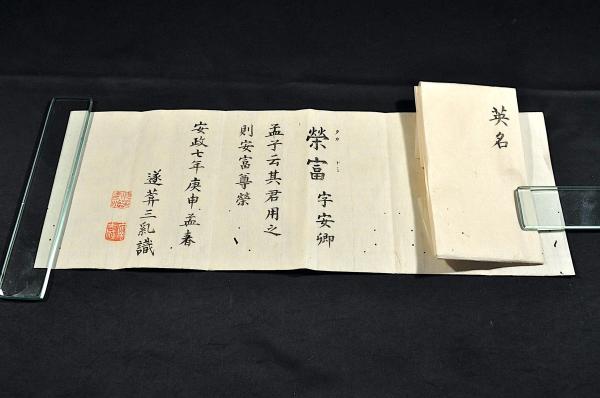 英名
榮富 字安卿
孟子云其君用之
則安富尊榮
安政七年庚申孟春
三乳識